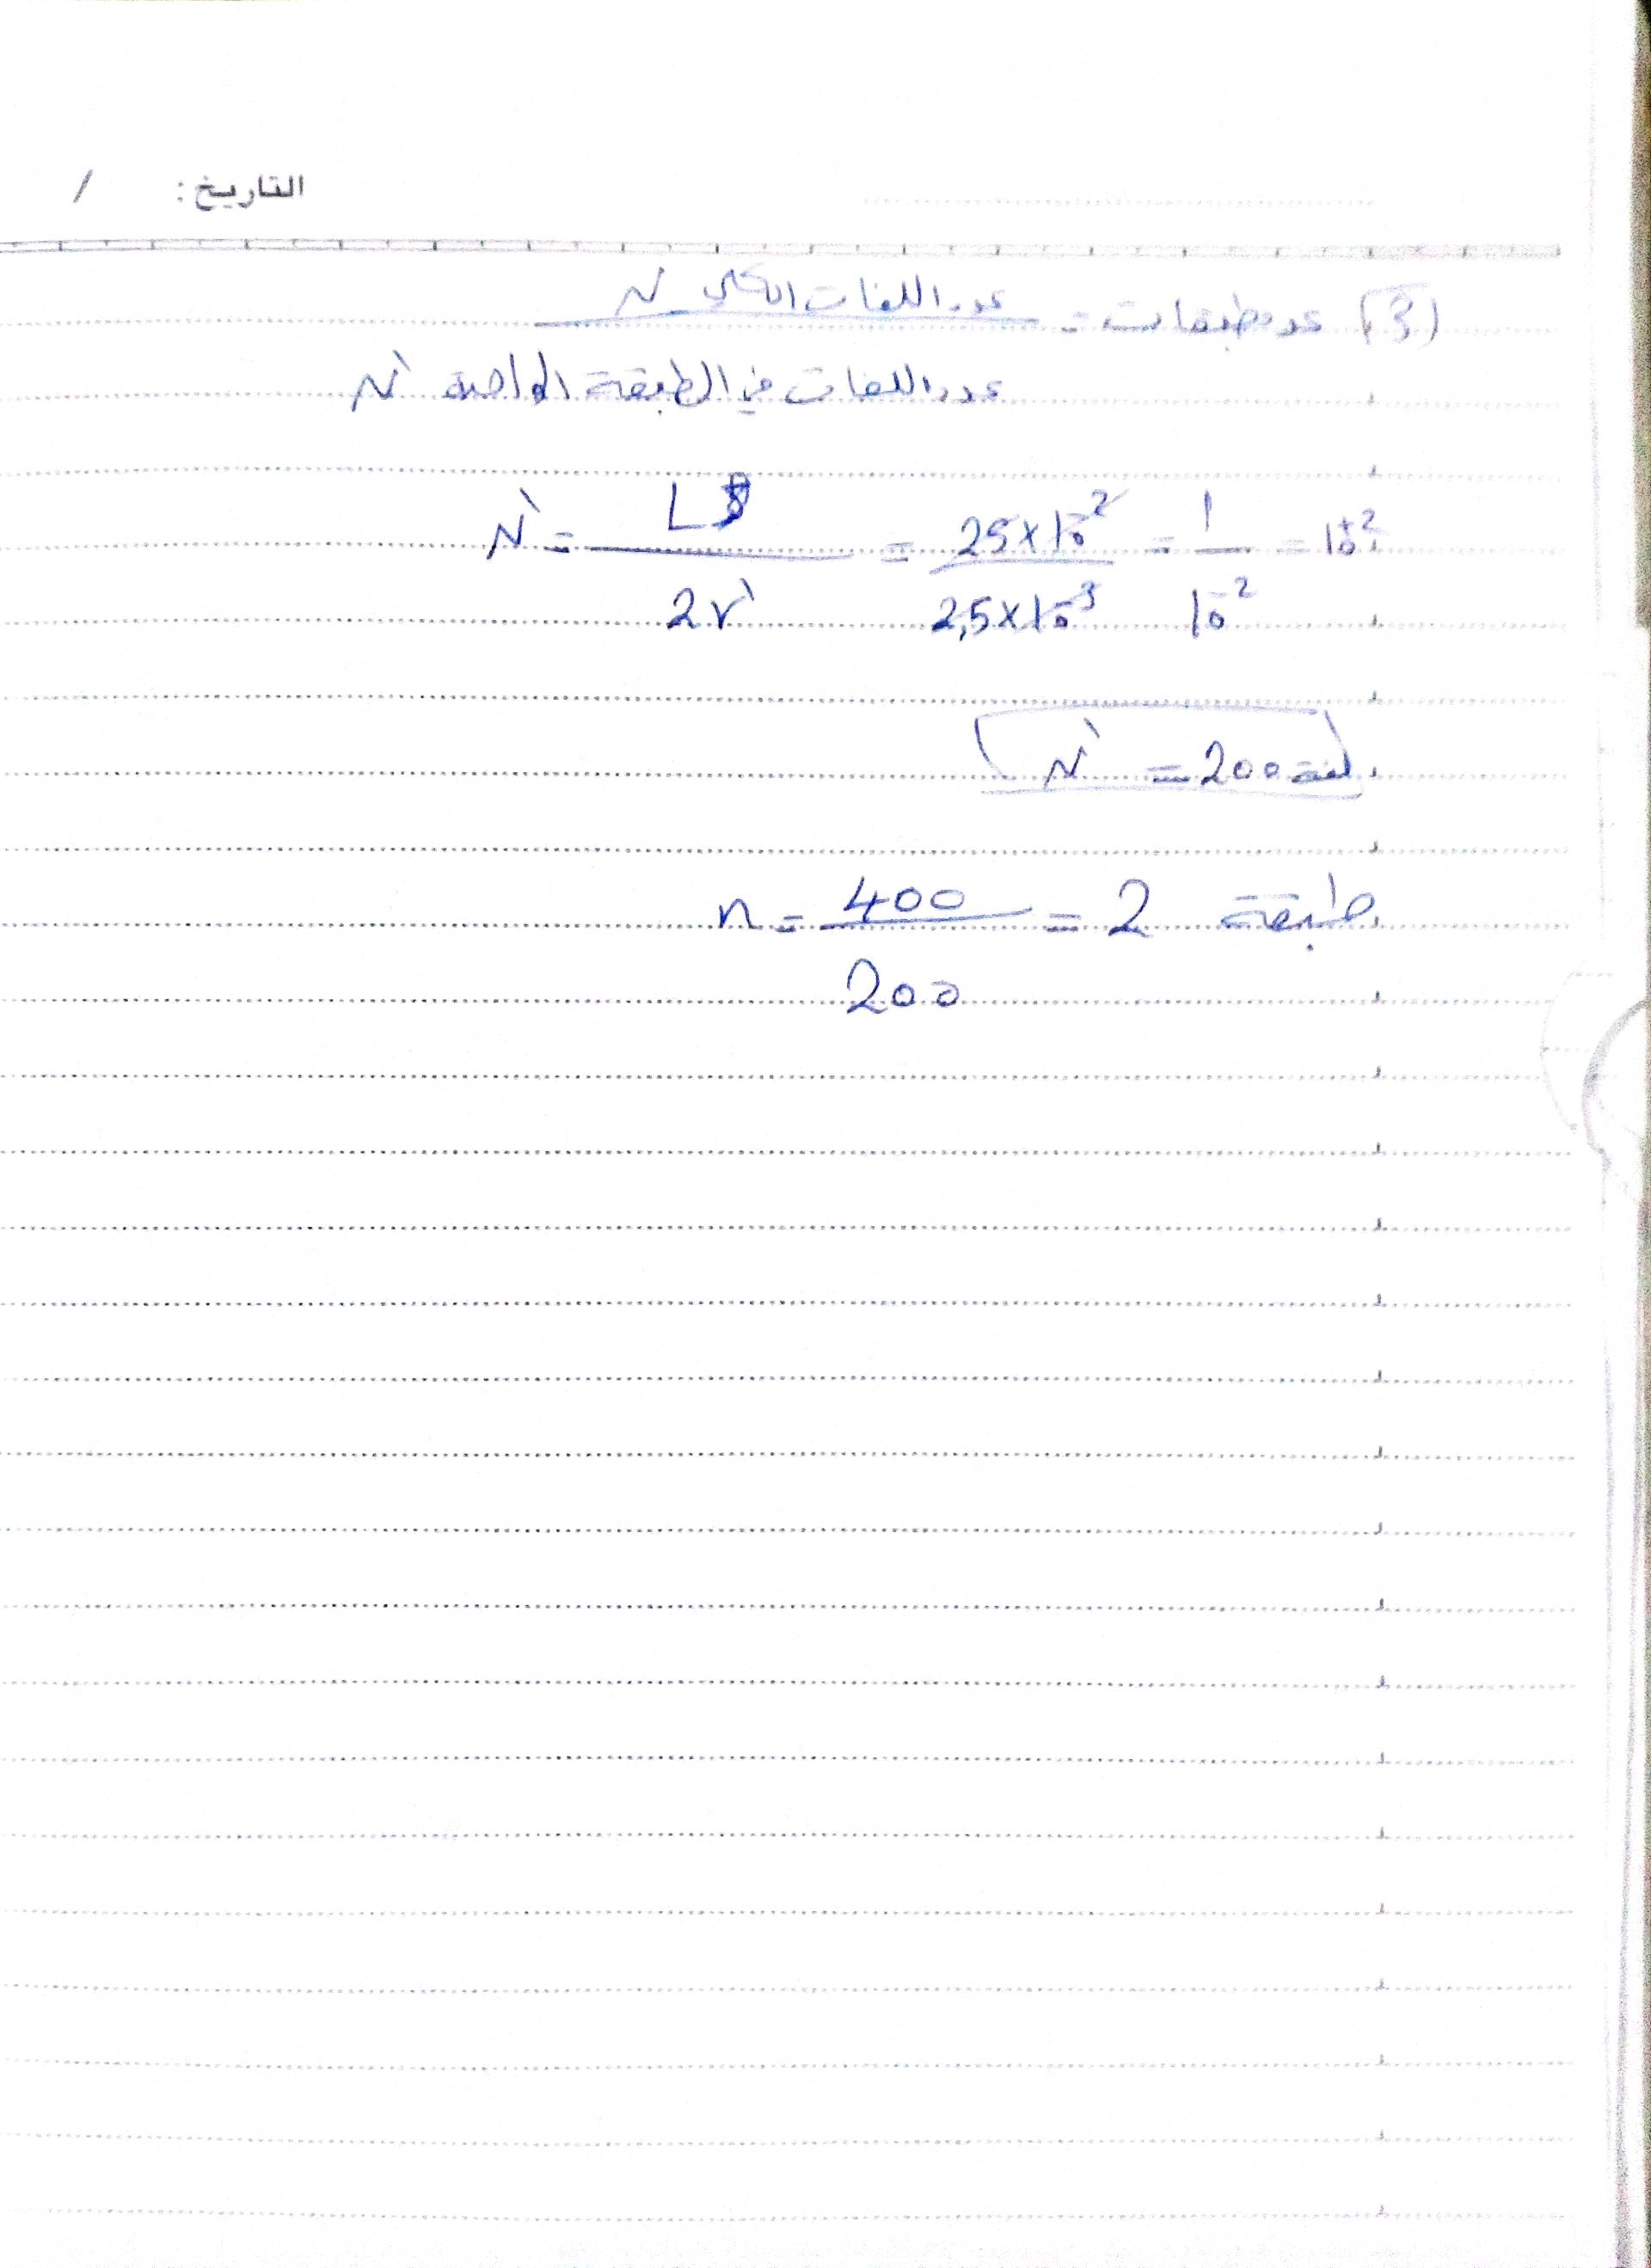 التاريخ: /
(3) عدد طبقات = عدد اللفات الكلي N
عدد اللفات في الطبقة الواحدة N'
N' = L / 2r' = 25×10⁻² / 2,5×10⁻³ = 1 / 10⁻² = 10⁺²
N' = 200 لفة
n = 400 / 200 = 2 طبقة